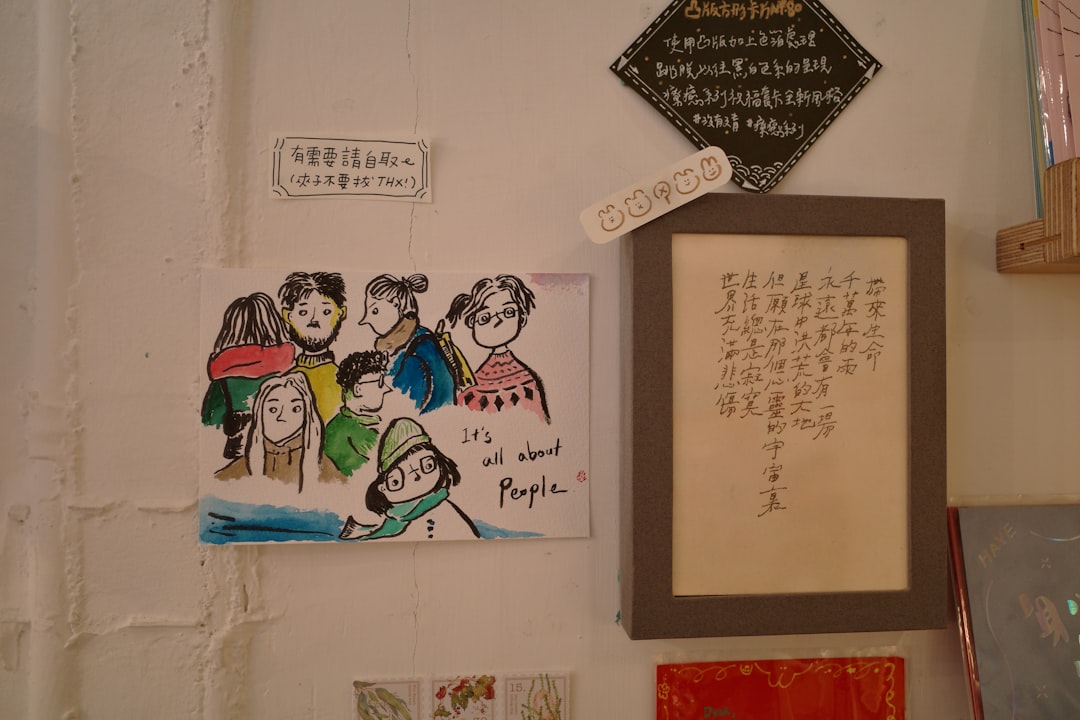 凸版方形卡片NT80
使用凸版加上色
跳脫以往黑白色系的呈現
療癒系列祝福賀卡全新風格
#療癒系列
有需要請自取
(夾子不要拔 THX!)
It's
all about
People
帶來生命
千萬年的雨
永遠都會有一場
星球中洪荒的大地
但願在那個心靈的宇宙裏
生活總是寂寞
世界充滿悲傷
HAVE
15.
Dear,